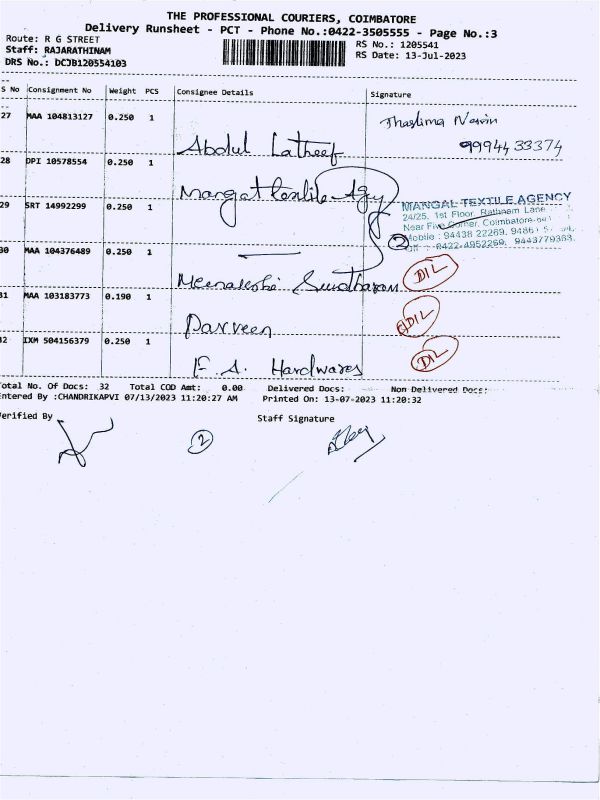 THE PROFESSIONAL COURIERS, COIMBATORE
Delivery Runsheet - PCT - Phone No.:0422-3505555 - Page No.:3
Route: R G STREET
RS No.: 1205541
Staff: RAJARATHINAM
RS Date: 13-Jul-2023
DRS No.: DCJB120554103
S No Consignment No Weight PCS Consignee Details Signature
27 MAA 104813127 0.250 1 Abdul Latheef Thaslima
9994433374
28 DPI 10578554 0.250 1 Mangal textile Agy
29 SRT 14992299 0.250 1
MANGAL TEXTILE AGENCY
24/25, 1st Floor, Rathnam Lane
Near Five Corner, Coimbatore
2 Mobile : 94438 22269,
0422-4952269, 9443779363
30 MAA 104376489 0.250 1 Meenakshi Sundharam DIL
31 MAA 103183773 0.190 1 Parveen DIL
32 IXM 504156379 0.250 1 F. A. Hardwares DIL
Total No. Of Docs: 32 Total COD Amt: 0.00 Delivered Docs: Non Delivered Docs:
Entered By :CHANDRIKAPVI 07/13/2023 11:20:27 AM Printed On: 13-07-2023 11:20:32
Verified By Staff Signature
2